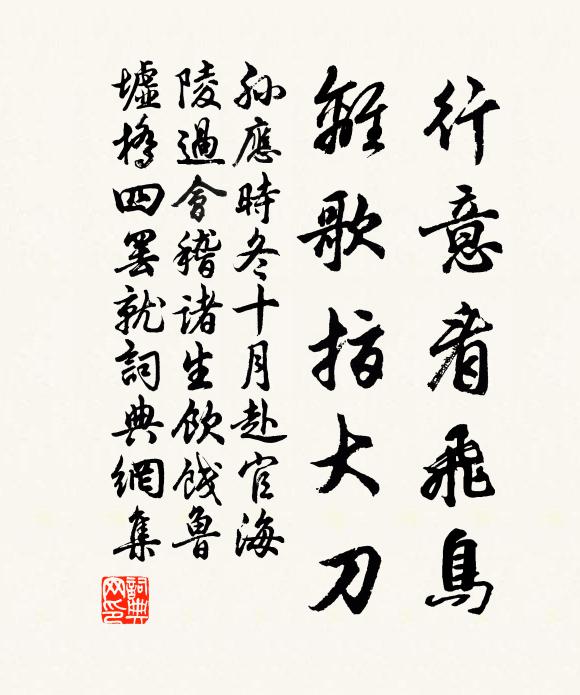 行意看飛鳥
離歌指大刀
孫應時冬十月赴官海
陵過會稽諸生飲餞魯
墟橋四罢就詞典網集
詞典網印